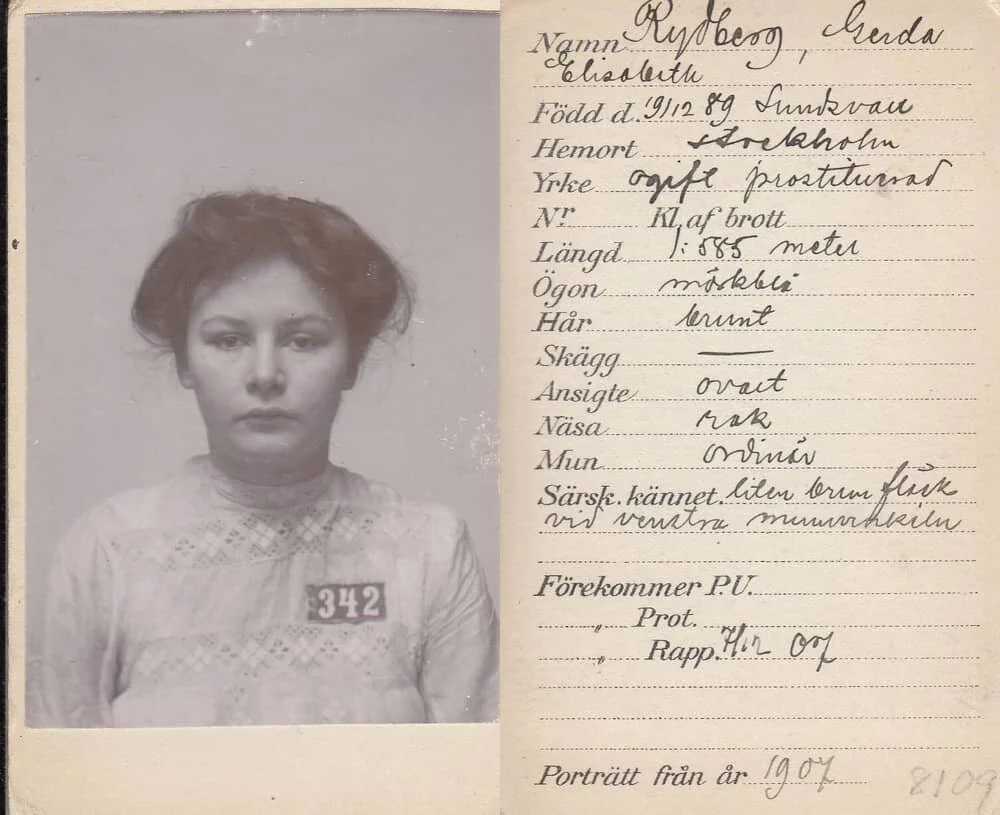 342
Namn Rydberg, Gerda
Elisabeth
Född d. 19/12 89 Sundsvall
Hemort Stockholm
Yrke ogift prostituerad
Nr. Kl. af brott
Längd 1:585 meter
Ögon mörkblå
Hår brunt
Skägg —
Ansigte ovalt
Näsa rak
Mun ordinär
Särsk. kännet. liten brun fläck
vid venstra munvinkeln
Förekommer P.U.
„ Prot.
„ Rapp. 7/12 07
Porträtt från år 1907
8109